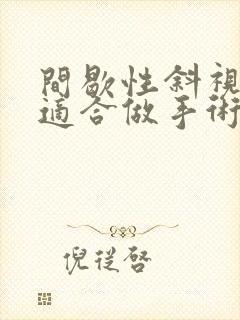 間歇性斜視
適合做手術
倪從啓